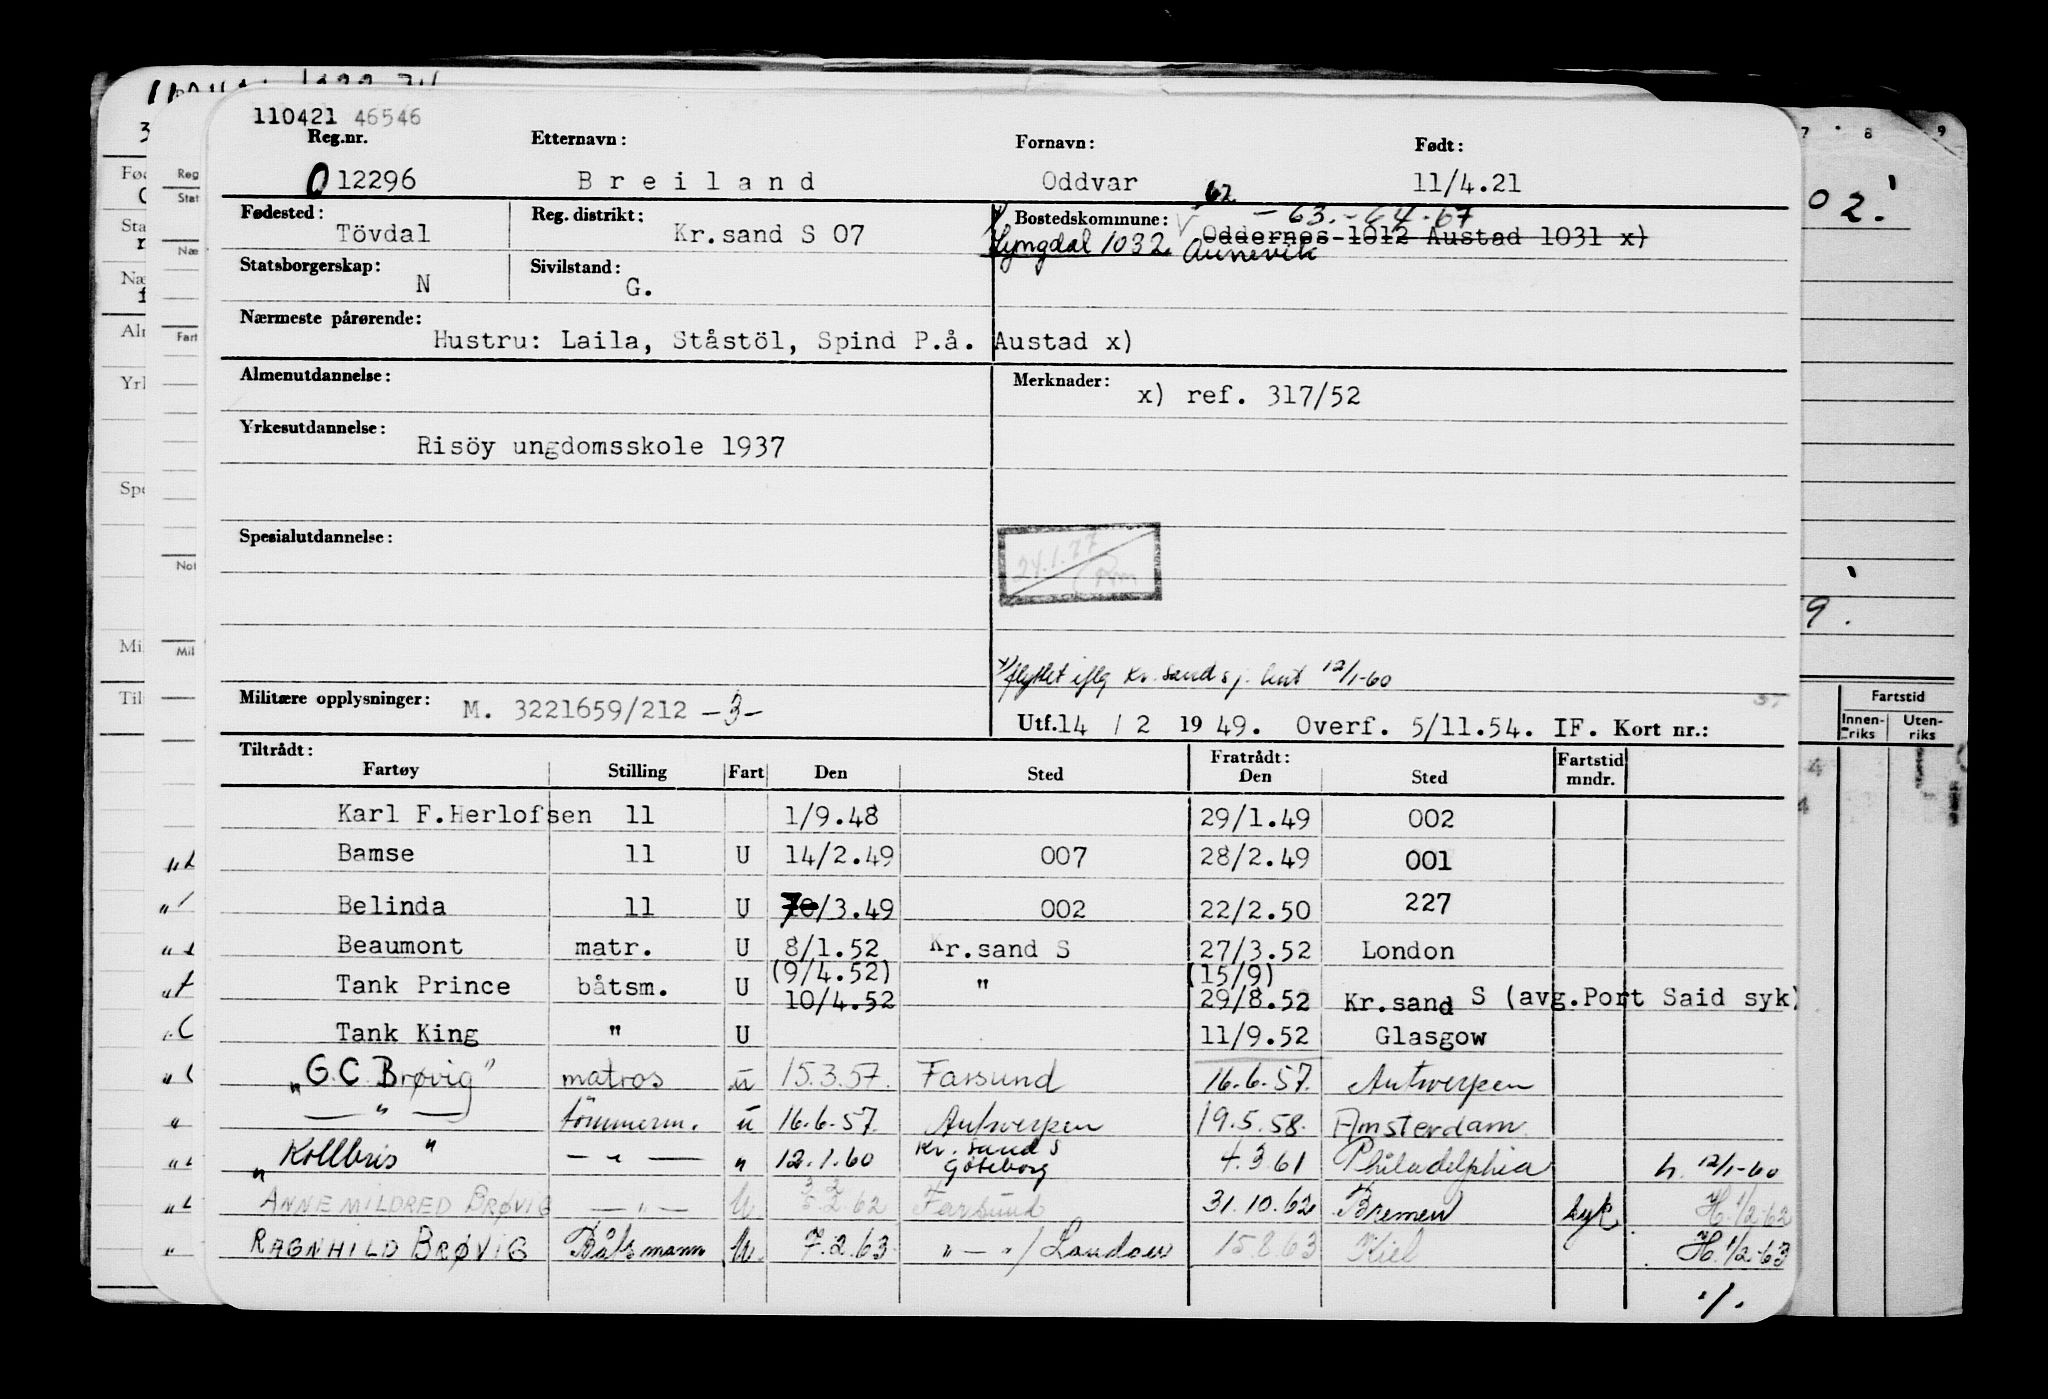 110421 46546
Reg.nr. Etternavn: Fornavn: Født:
012296 Breiland Oddvar 11/4.21
62 - 63. - 64. 67
Fødested: Reg. distrikt: Bostedskommune:
Tövdal Kr.sand S 07 Oddernes 1012 Austad 1031 x)
Lyngdal 1032 Aunevik
Statsborgerskap: Sivilstand:
N G.
Nærmeste pårørende:
Hustru: Laila, Ståstöl, Spind P.å. Austad x)
Almenutdannelse: Merknader:
x) ref. 317/52
Yrkesutdannelse:
Risöy ungdomsskole 1937
Spesialutdannelse:
24.1.77
x) flyttet iflg Kr.sand sj. 12/1-60
Militære opplysninger: M. 3221659/212 -3-
Utf. 14 / 2 1949. Overf. 5/11.54. IF. Kort nr.:
Tiltrådt: Fratrådt: Fartstid
Fartøy Stilling Fart Den Sted Den Sted mndr.
Karl F.Herlofsen 11 1/9.48 29/1.49 002
Bamse 11 U 14/2.49 007 28/2.49 001
Belinda 11 U 7/3.49 002 22/2.50 227
Beaumont matr. U 8/1.52 Kr.sand S 27/3.52 London
(9/4.52) (15/9)
Tank Prince båtsm. U 10/4.52 " 29/8.52 Kr.sand S (avg.Port Said syk)
Tank King " U 11/9.52 Glasgow
"G.C. Brøvig" matros u 15.3.57. Farsund 16.6.57. Antwerpen
— " — tömmerm. u 16.6.57. Antwerpen 19.5.58. Amsterdam
"Kollbris" — " — " 12.1.60 Kr. sand S Göteborg 4.3.61 Philadelphia h. 12/1-60
ANNE MILDRED BRØVIG — " — U 2.62 Farsund 31.10.62 Bremen syk H. 1/2-62
RAGNHILD BRØVIG Båtsmann U. 7.2.63 " — " / Landow 15.8.63 Kiel H. 1/2-63
./.
Fartstid
Innen-riks Uten-riks
7 8 9
02.
9.